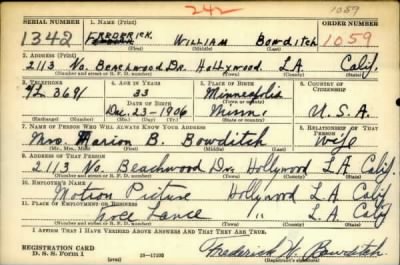 242 1059
SERIAL NUMBER 1. NAME (Print) ORDER NUMBER
1342 FREDERICK WILLIAM BOWDITCH 1059
(First) (Middle) (Last)
2. ADDRESS (Print)
2113 No. Beachwood Dr. Hollywood L.A. Calif.
(Number and street or R. F. D. number) (Town) (County) (State)
3. TELEPHONE 4. AGE IN YEARS 5. PLACE OF BIRTH 6. COUNTRY OF CITIZENSHIP
33 Minneapolis
DATE OF BIRTH (Town or county)
Dec. 23-1906 Minn. U.S.A.
(Mo.) (Day) (Yr.) (State or country)
7. NAME OF PERSON WHO WILL ALWAYS KNOW YOUR ADDRESS 8. RELATIONSHIP OF THAT PERSON
Mrs. Marion B. Bowditch Wife
(Mr., Mrs., Miss) (First) (Middle) (Last)
9. ADDRESS OF THAT PERSON
2113 No. Beachwood Dr. Hollywood L.A. Calif.
(Number and street or R. F. D. number) (Town) (County) (State)
10. EMPLOYER'S NAME
Motion Picture Hollywood L.A. Calif.
11. PLACE OF EMPLOYMENT OR BUSINESS
" L.A. Calif
(Number and street or R. F. D. number) (Town) (County) (State)
I AFFIRM THAT I HAVE VERIFIED ABOVE ANSWERS AND THAT THEY ARE TRUE.
REGISTRATION CARD
D. S. S. Form 1 (over) 16-17105 Frederick W. Bowditch
(Registrant's signature)